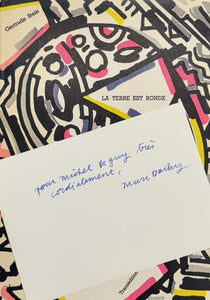 Gertrude Stein
LA TERRE EST RONDE
pour Michel Deguy très
cordialement,
Marc Dachy
Transédition